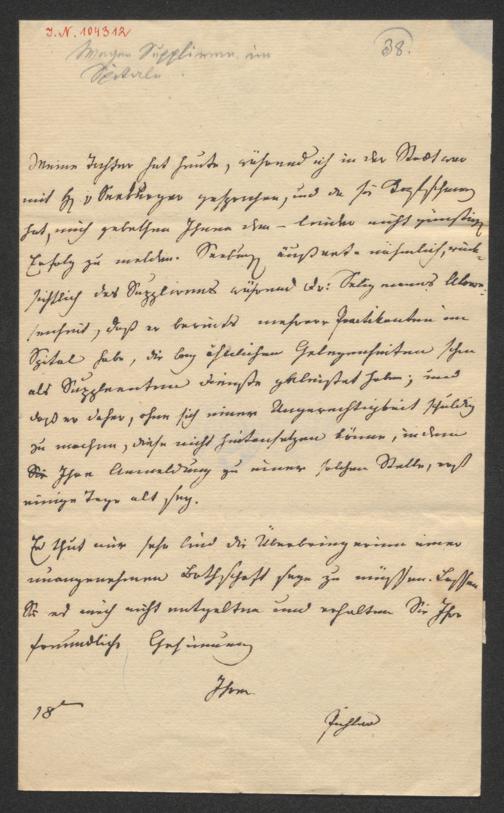 I.N. 104312
38.
Wegen Supplieren im
Spitale
Meine Tochter hat heute, während ich in der Stadt war
mit H v Seeburger gesprochen, und da sie Kopfschmerz
hat, mich gebethen Ihnen den – leider nicht günstigen
Erfolg zu melden. Seeburg äußerte nähmlich, rück-
sichtlich des Supplirens während Dr: Seligmanns Abwe-
senheit, daß er bereits mehrere Practikanten im
Spital habe, die bey ähnlichen Gelegenheiten schon
als Supplenten Dienste geleistet haben; und
daß er daher, ohne sich einer Ungerechtigkeit schuldig
zu machen, diese nicht hintansetzen könne, indem
Ihre Anmeldung zu einer solchen Stelle, erst
einige Tage alt sey.
Es thut mir sehr leid die Überbringerinn einer
unangenehmen Bothschaft seyn zu müssen. Lassen
Sie es mich nicht entgelten und erhalten Sie Ihre
freundliche Gesinnung
Ihrer
18
Pichler